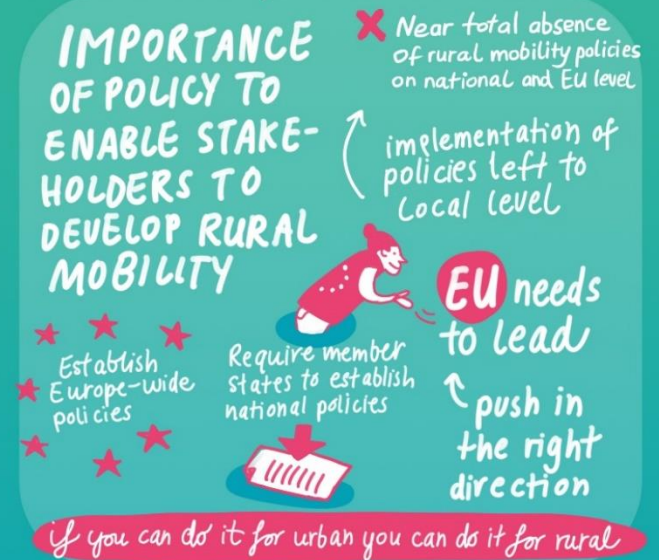 IMPORTANCE
OF POLICY TO
ENABLE STAKE-
HOLDERS TO
DEVELOP RURAL
MOBILITY
Near total absence
of rural mobility policies
on national and EU level
implementation of
policies left to
Local level
EU needs
to lead
push in
the right
direction
Establish
Europe-wide
policies
Require member
states to establish
national policies
if you can do it for urban you can do it for rural